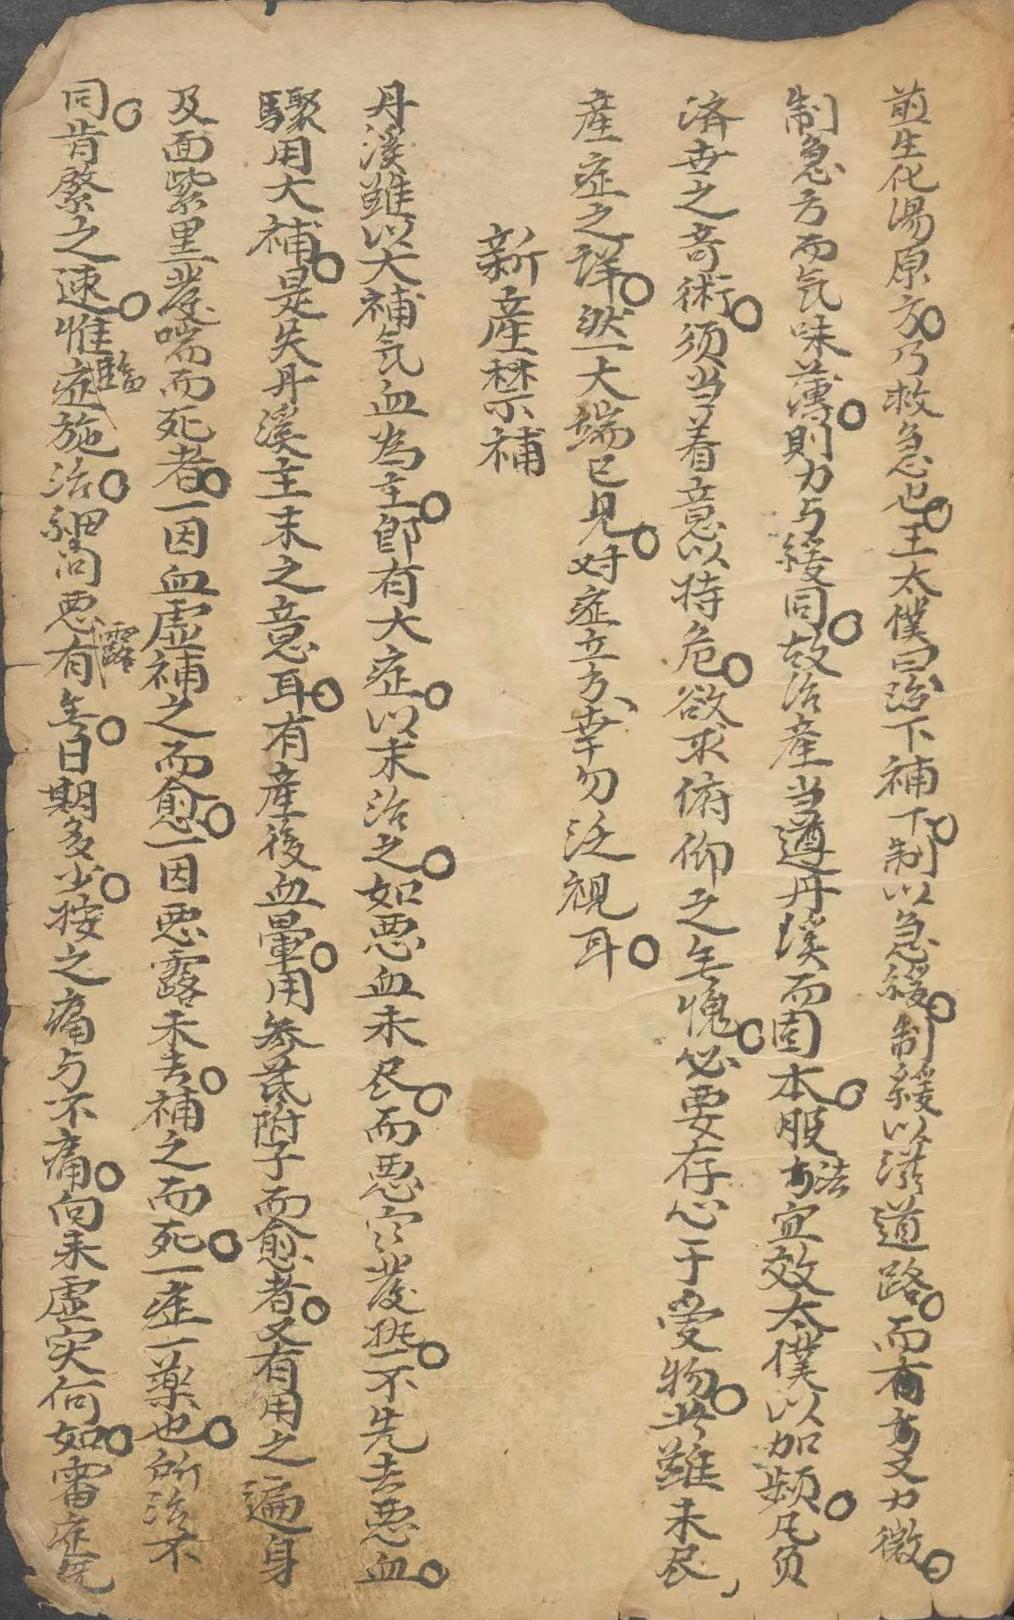 煎生化湯原方。乃救急也。王太僕曰治下補下。制以急緩。制緩以洪道路。而有方又力微。
制急方而気味薄。則力与緩同。故治産当遵丹溪而固本。服方法宜效太僕以加頻。凡负
済世之奇術。须当着意以持危。欲求俯仰之無愧。必要存心于爱物。此雖未尽、
産症之詳。然一大端已見。对症立方、幸勿泛視耳。
新産禁補
丹溪雖以大補気血為主。即有大症。以末治之。如悪血未尽。而悪寒發热。不先去悪血。
驟用大補。是失丹溪主末之意耳。有産後血暈。用参芪附子而愈者。又有用之遍身
及面紫黒發喘而死者。一因血虚補之而愈。一因悪露未去。補之而死。一症一藥也。所治不
同。肯綮之速。惟臨症施治。細问悪露有無。日期多少。按之痛与不痛。向来虚实何如。審症